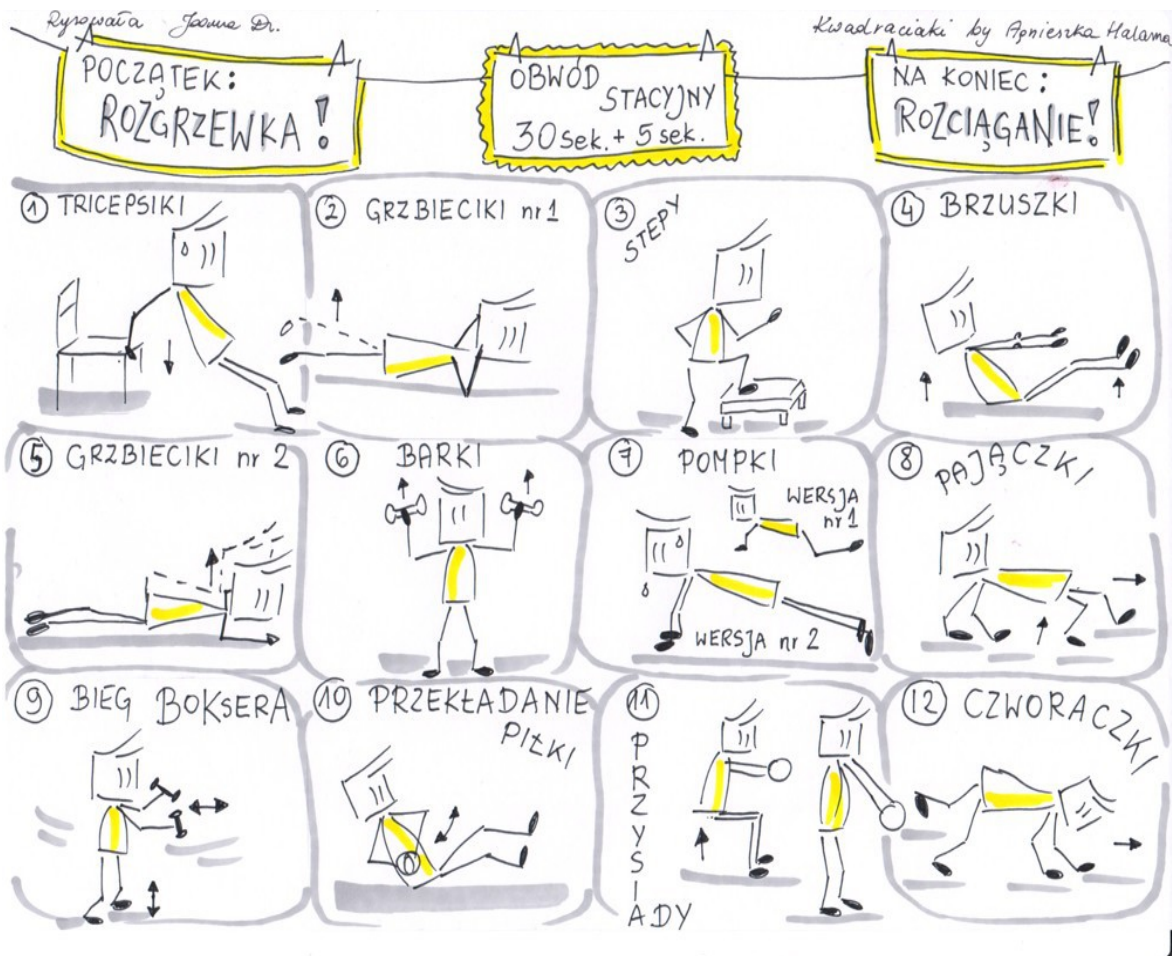 Rysowała Joanna Dr.
Kwadraciaki by Agnieszka Halama
POCZĄTEK:
ROZGRZEWKA!
OBWÓD
STACYJNY
30 sek. + 5 sek.
NA KONIEC:
ROZCIĄGANIE!
1 TRICEPSIKI
2 GRZBIECIKI nr 1
3 STEPY
4 BRZUSZKI
5 GRZBIECIKI nr 2
6 BARKI
7 POMPKI
WERSJA
nr 1
WERSJA nr 2
8 PAJĄCZKI
9 BIEG BOKSERA
10 PRZEKŁADANIE
PIŁKI
11 PRZYSIADY
12 CZWORACZKI